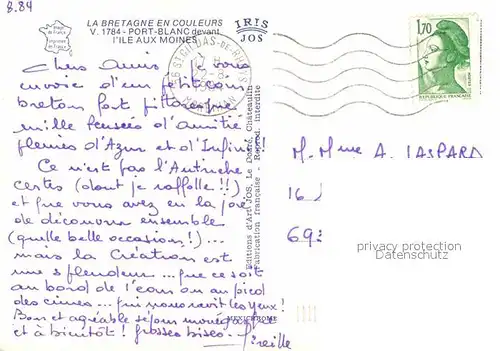 8.84
LA BRETAGNE EN COULEURS
V. 1784 - PORT-BLANC devant
l'ILE AUX MOINES
IRIS
JOS
56 ST GILDAS-DE-RHUYS
MORBIHAN
1,70
REPUBLIQUE FRANÇAISE
Chers Amis, Je vous
envoie d'un petit coin
breton fort pittoresque
mille Pensées d'Amitié
fleuries d'Azur et d'Infini !
Ce n'est pas l'Autriche
certes (dont je raffolle !!)
et que vous avez eu la joie
de découvrir ensemble
(quelle belle occasion !)...
mais la Création est
une splendeur... que ce soit
au bord de l'eau ou au pied
des cimes... qui nous ravit les yeux !
Bon et agréable séjour
et à bientôt ! grosses bises.
Mireille
Editions d'Art JOS, Le Doaré, Châteaulin
Fabrication française - Reprod. interdite
MEXICHROME
M. Mme A. IASPARD
16
69
privacy protection
VEILHAN.COM